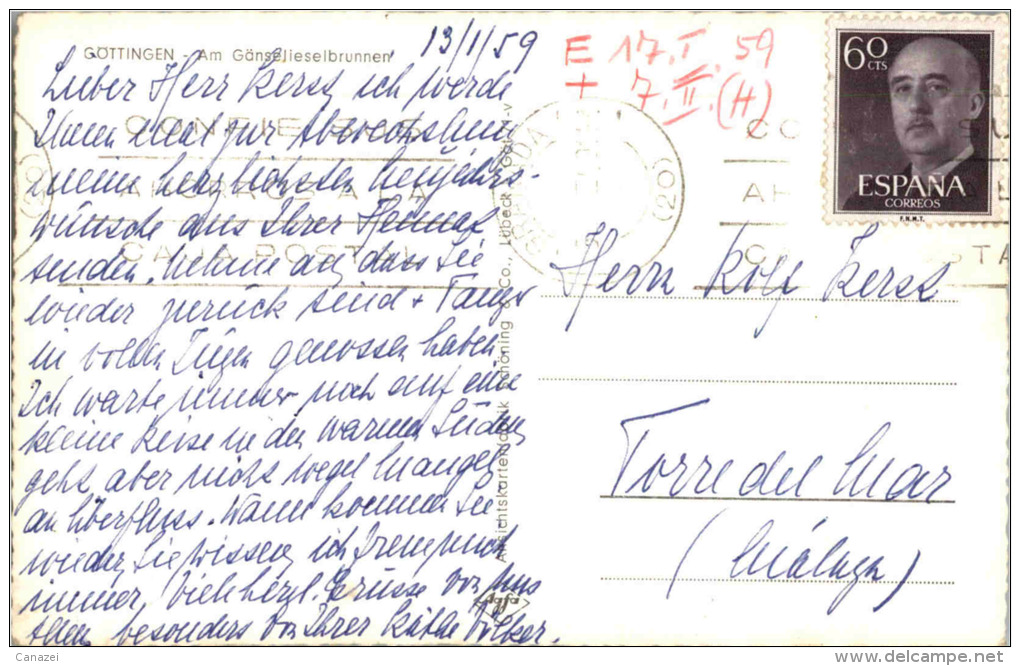 GÖTTINGEN - Am Gänselieselbrunnen
13/1/59
E 17.I.59
+ 7.II.(H)
60
CTS
ESPAÑA
CORREOS
F.N.M.T.
Lieber Herr Kersz, ich werde
Ihnen mal zur Abwechslung
meine herzlichsten Neujahrs-
wünsche aus Ihrer Heimat
senden. Nehme an, dass Sie
wieder zurück sind + Tanger
in vollen Zügen genossen haben.
Ich warte immer noch auf eine
kleine Reise in den warmen Süden,
geht aber nicht wegen Mangel
an Überfluss. Wann kommen Sie
wieder, Sie wissen, ich freu mich
immer, Viele herzl. Grüsse von uns
Allen besonders von Ihrer Käthe Völker.
Ansichtskartenfabrik Schöning & Co., Lübeck
Agfa
Herrn Rolf Kersz
Torre del Mar
(Málaga)
CORRESPONDA
(20)
AHORRE
CAJA POSTAL
Canazei